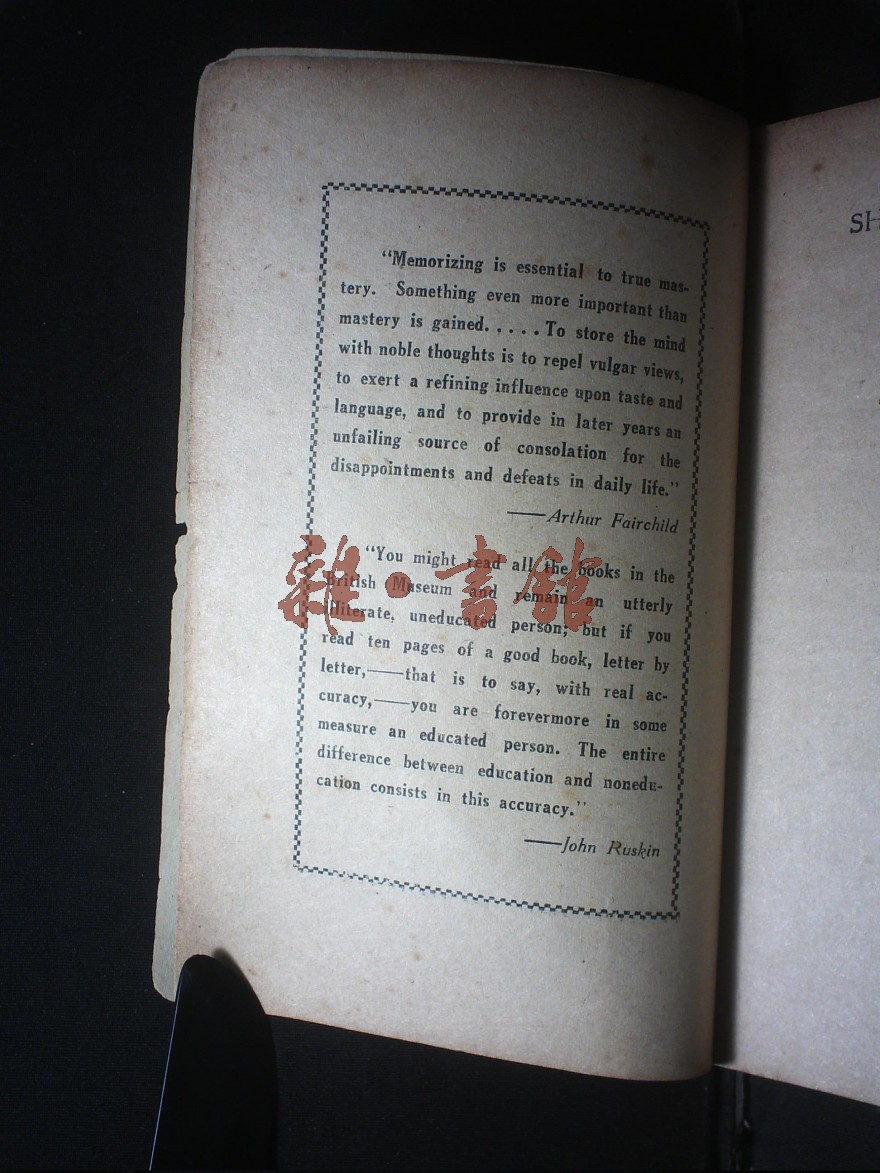 “Memorizing is essential to true mas-
tery. Something even more important than
mastery is gained.....To store the mind
with noble thoughts is to repel vulgar views,
to exert a refining influence upon taste and
language, and to provide in later years an
unfailing source of consolation for the
disappointments and defeats in daily life.”
——Arthur Fairchild
“You might read all the books in the
British Museum and remain an utterly
illiterate, uneducated person; but if you
read ten pages of a good book, letter by
letter,——that is to say, with real ac-
curacy,——you are forevermore in some
measure an educated person. The entire
difference between education and nonedu-
cation consists in this accuracy.”
——John Ruskin
雜·書館
SH